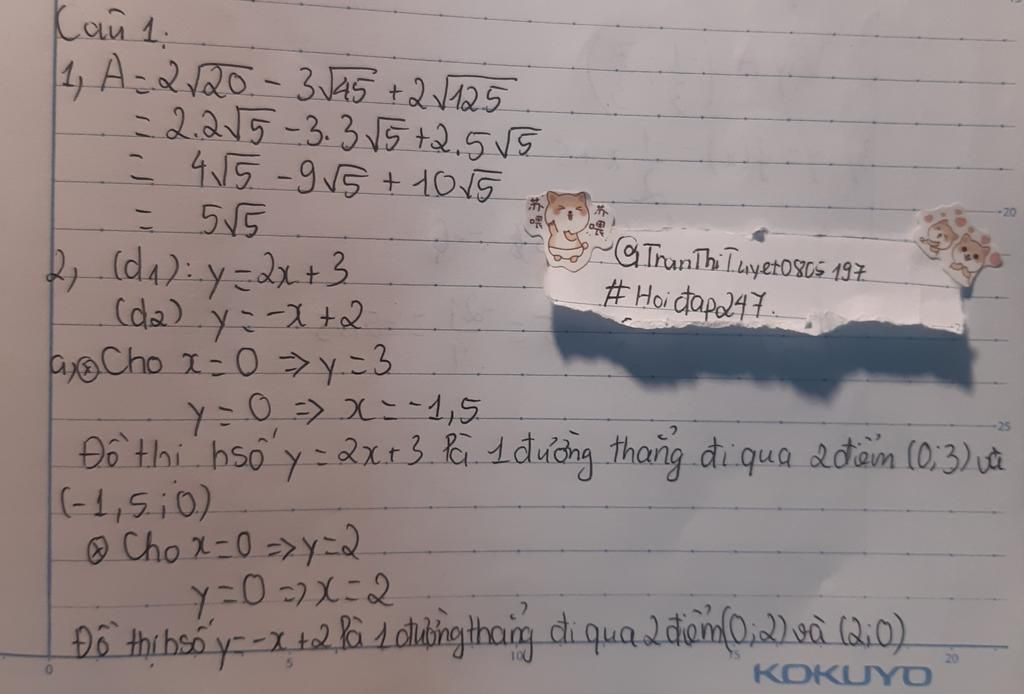 Câu 1:
1, A = 2√20 - 3√45 + 2√125
= 2.2√5 - 3.3√5 + 2.5√5
= 4√5 - 9√5 + 10√5
= 5√5
苏喂 苏喂
@TranThiTuyet0805197
#Hoidap247.
2, (d1): y = 2x + 3
(d2) y = -x + 2
a, ⊛ Cho x = 0 => y = 3
y = 0 => x = -1,5
Đồ thị hsố y = 2x + 3 là 1 đường thẳng đi qua 2 điểm (0;3) và
(-1,5;0)
⊛ Cho x = 0 => y = 2
y = 0 => x = 2
Đồ thị hsố y = -x + 2 là 1 đường thẳng đi qua 2 điểm (0;2) và (2;0)
20
25
0 5 10 15 20
KOKUYO